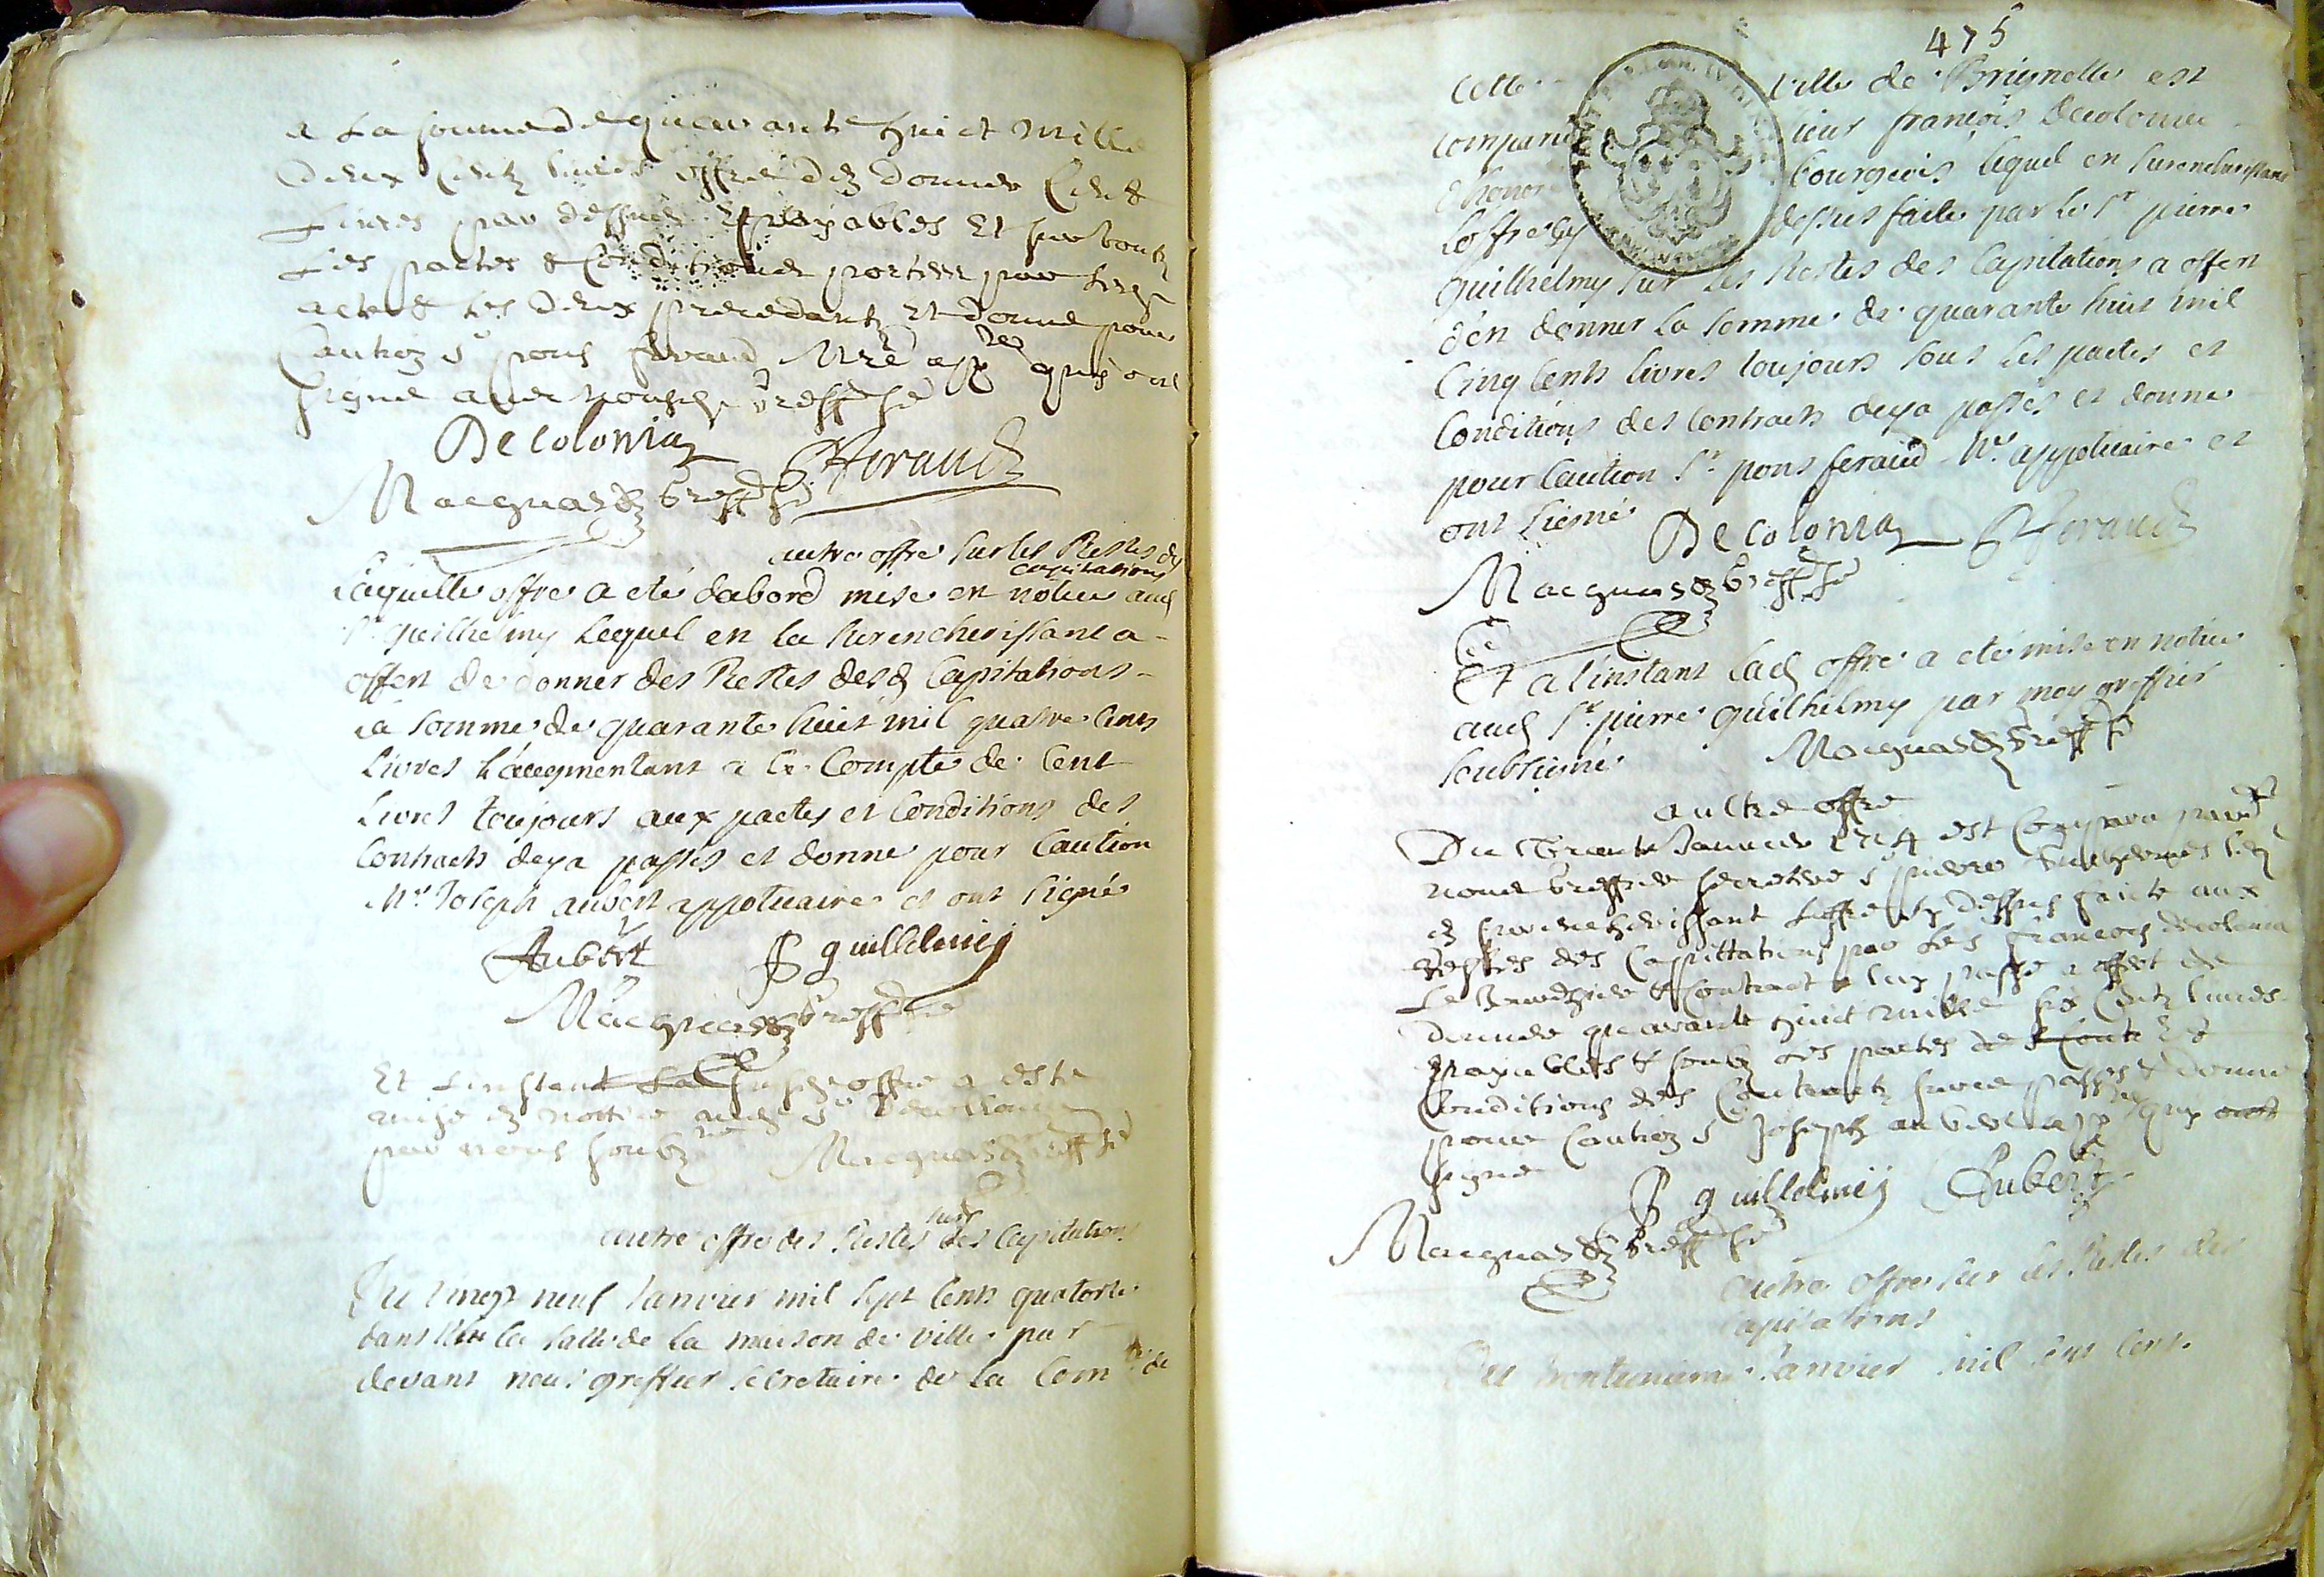 a la somme de quarante huict mille
deux centz livres offre den donner cent
livres par dessus payables et sur touts
les pactes & conditions portees par
actes & les deux precedantz et donne pour
caution sr pons feraud Mre appre quy ont
signe avec nous greffre
Decolonia
Feraud
Macquas greff
autre offre sur les Restes des
capitations
Laquelle offre a eté dabord mise en notice aud
Sr guilhelmy Lequel en la surencherissant a
offert de donner des Restes desd Capitations
la somme de quarante huit mil quatre cents
Livres L'augmentant a ce Compte de Cent
Livres toujours aux pactes et Conditions des
Contracts deja passés et donne pour Caution
Mr Joseph aubert appoticaire et ont signé
Aubert
P guillelmy
Macquas greff
Et linstant la offre a este
mise en notice aud sr decollonia
par nous soubz Macquas greff
autre offre des Restes sur des Capitations
Du vingt neuf Janvier mil sept cents quatorze
dans la salle de la maison de ville par
devant nous greffier secretaire de la Comté de
475
Cette ville de Brignolle est
comparu sieur françois decolonia
bourgeois lequel en surencherissant
Loffre cy dessus faite par le Sr pierre
guilhelmy sur les Restes des Capitations a offert
d'en donner la somme de quarante huit mil
Cinq Cents livres toujours sous les pactes et
Conditions des Contracts deja passés et donne
pour Caution Sr pons feraud Mre appoticaire et
ont signé
Decolonia
Feraud
Macquas greff
Et a l'instant lad offre a eté mise en notice
aud Sr pierre guilhelmy par moy greffier
soubsigné Macquas greff
aultre offre
Du Trente Janvier 1714 est Comparu pard
nous greffier secretere sr pierre lequel
en surencherissant loffre cy dessus faicte aux
Restes des Capittations par les françois decolonia
Contract a luy passe a offert de
donner quarante huict mille six centz livres
payables & soubz les pactes de
Conditions des Contractz passes & donne
pour caution sr Joseph aubert appre quy ont
signe
P guillelmy Aubert
Macquas greff
autre offre sur les Restes des
Capitations
Du trentunieme Janvier mil sept cents